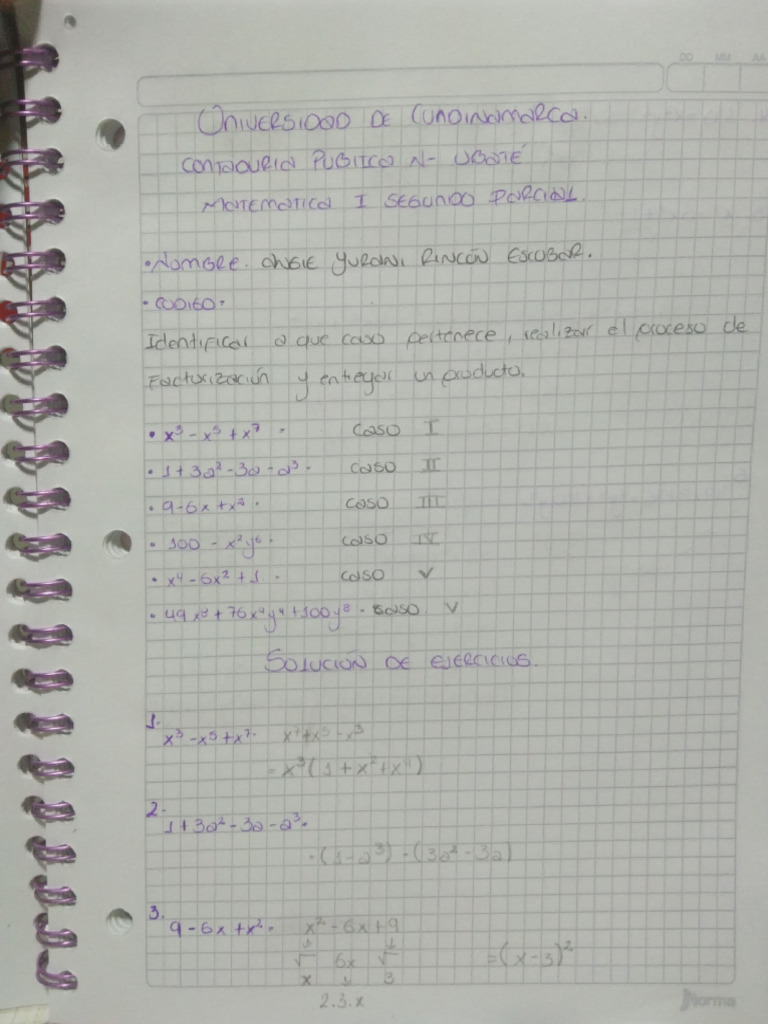 DD MM AA
UNIVERSIDAD DE CUNDINAMARCA.
CONTADURIA PUBLICA N- UBATÉ
MATEMATICA I SEGUNDO PARCIAL.
• NOMBRE. ANGIE YURANI RINCÓN ESCOBAR.
• CODIGO.
Identificar a que caso pertenece, realizar el proceso de
Factorización y entregar un producto.
• x³ - x⁵ + x⁷ . caso I
• 1 + 3a² - 3a - a³ . caso II
• 9 - 6x + x² . caso III
• 100 - x²y⁶ . caso IV
• x⁴ - 6x² + 1 . caso V
• 49x⁸ + 76x⁴y⁴ + 100y⁸ . caso V
SOLUCIÓN DE EJERCICIOS.
1. x³ - x⁵ + x⁷ . x⁷ + x⁵ - x³
= x³(1 + x² + x⁴)
2. 1 + 3a² - 3a - a³ .
• (1 - a³) - (3a² - 3a)
3. 9 - 6x + x² . x² - 6x + 9
√ 6x √ = (x - 3)²
x 3
2.3.x
Norma